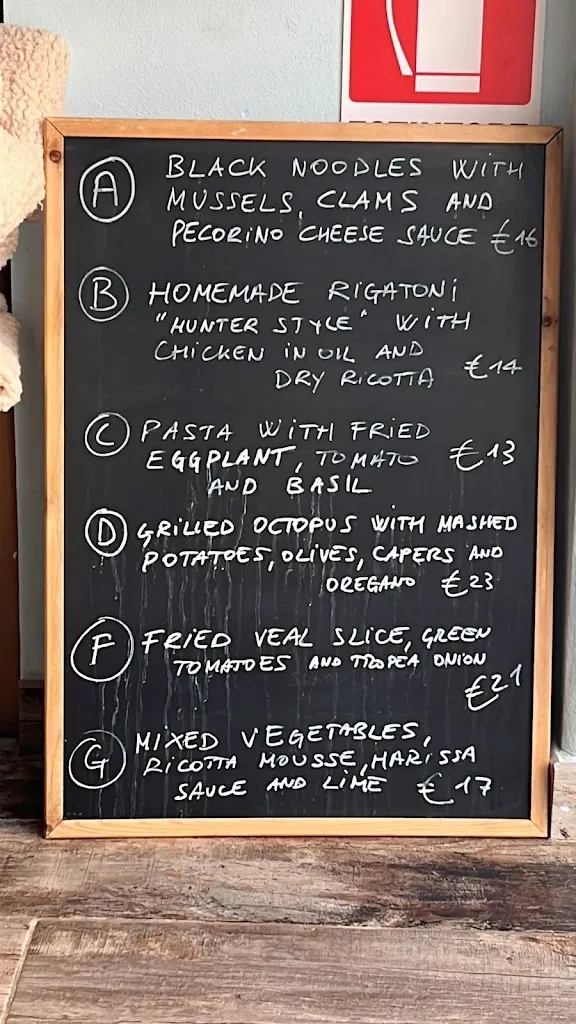 A BLACK NOODLES WITH
MUSSELS, CLAMS AND
PECORINO CHEESE SAUCE €16
B HOMEMADE RIGATONI
"HUNTER STYLE" WITH
CHICKEN IN OIL AND
DRY RICOTTA €14
C PASTA WITH FRIED
EGGPLANT, TOMATO €13
AND BASIL
D GRILLED OCTOPUS WITH MASHED
POTATOES, OLIVES, CAPERS AND
OREGANO €23
F FRIED VEAL SLICE, GREEN
TOMATOES AND TROPEA ONION
€21
G MIXED VEGETABLES,
RICOTTA MOUSSE, HARISSA
SAUCE AND LIME €17